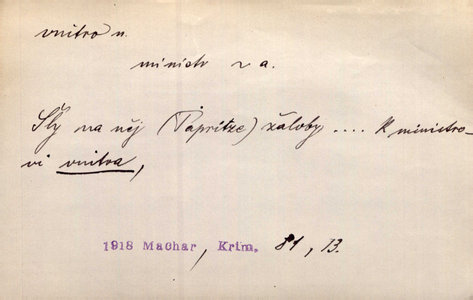 vnitro n.
ministr v a.
Šly na něj (Papritze) žaloby .... k ministro-
vi vnitra,
1918 Machar, Krim. 81, 13.